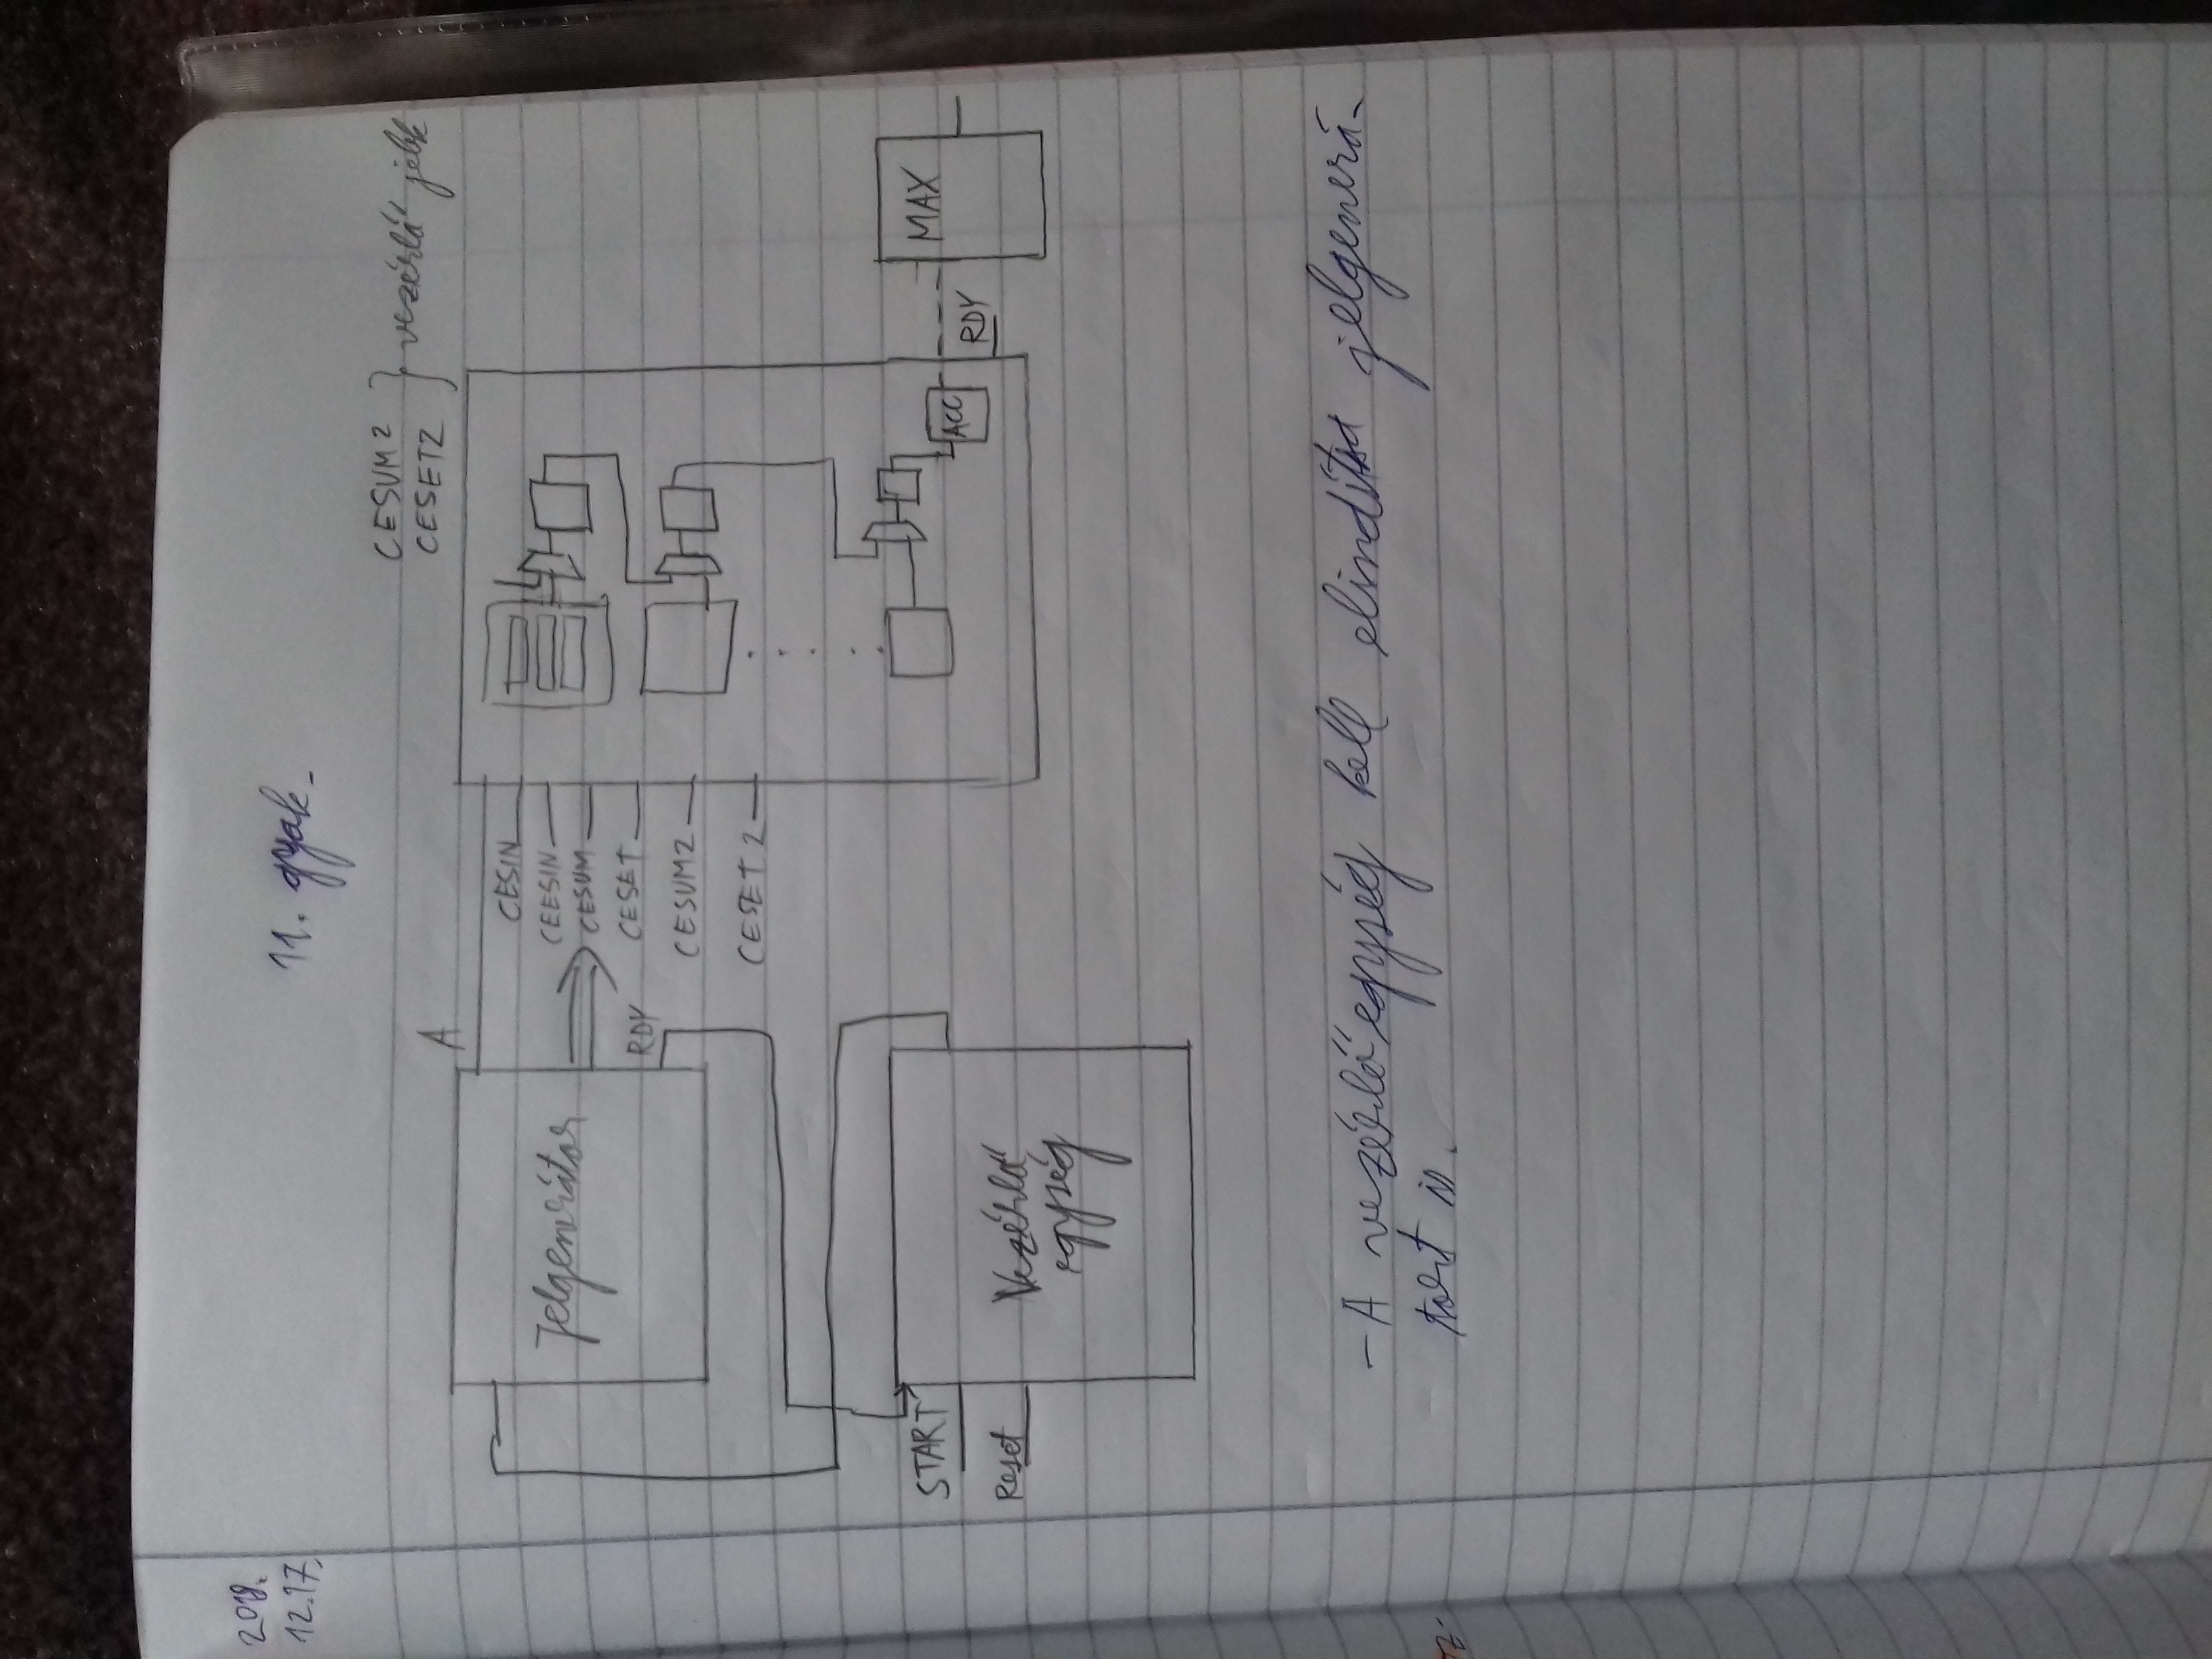 2018.
12.17.
11. gyak.
CESUM2
CESET2
vezérlő jelek
A
Jelgenerátor
CESIN
CEESIN
CESUM
RDY
CESET
CESUM2
CESET2
START
Reset
Vezérlő
egység
ACC
RDY
MAX
- A vezérlőegység kell elindítsa jelgenerá-
tort is.